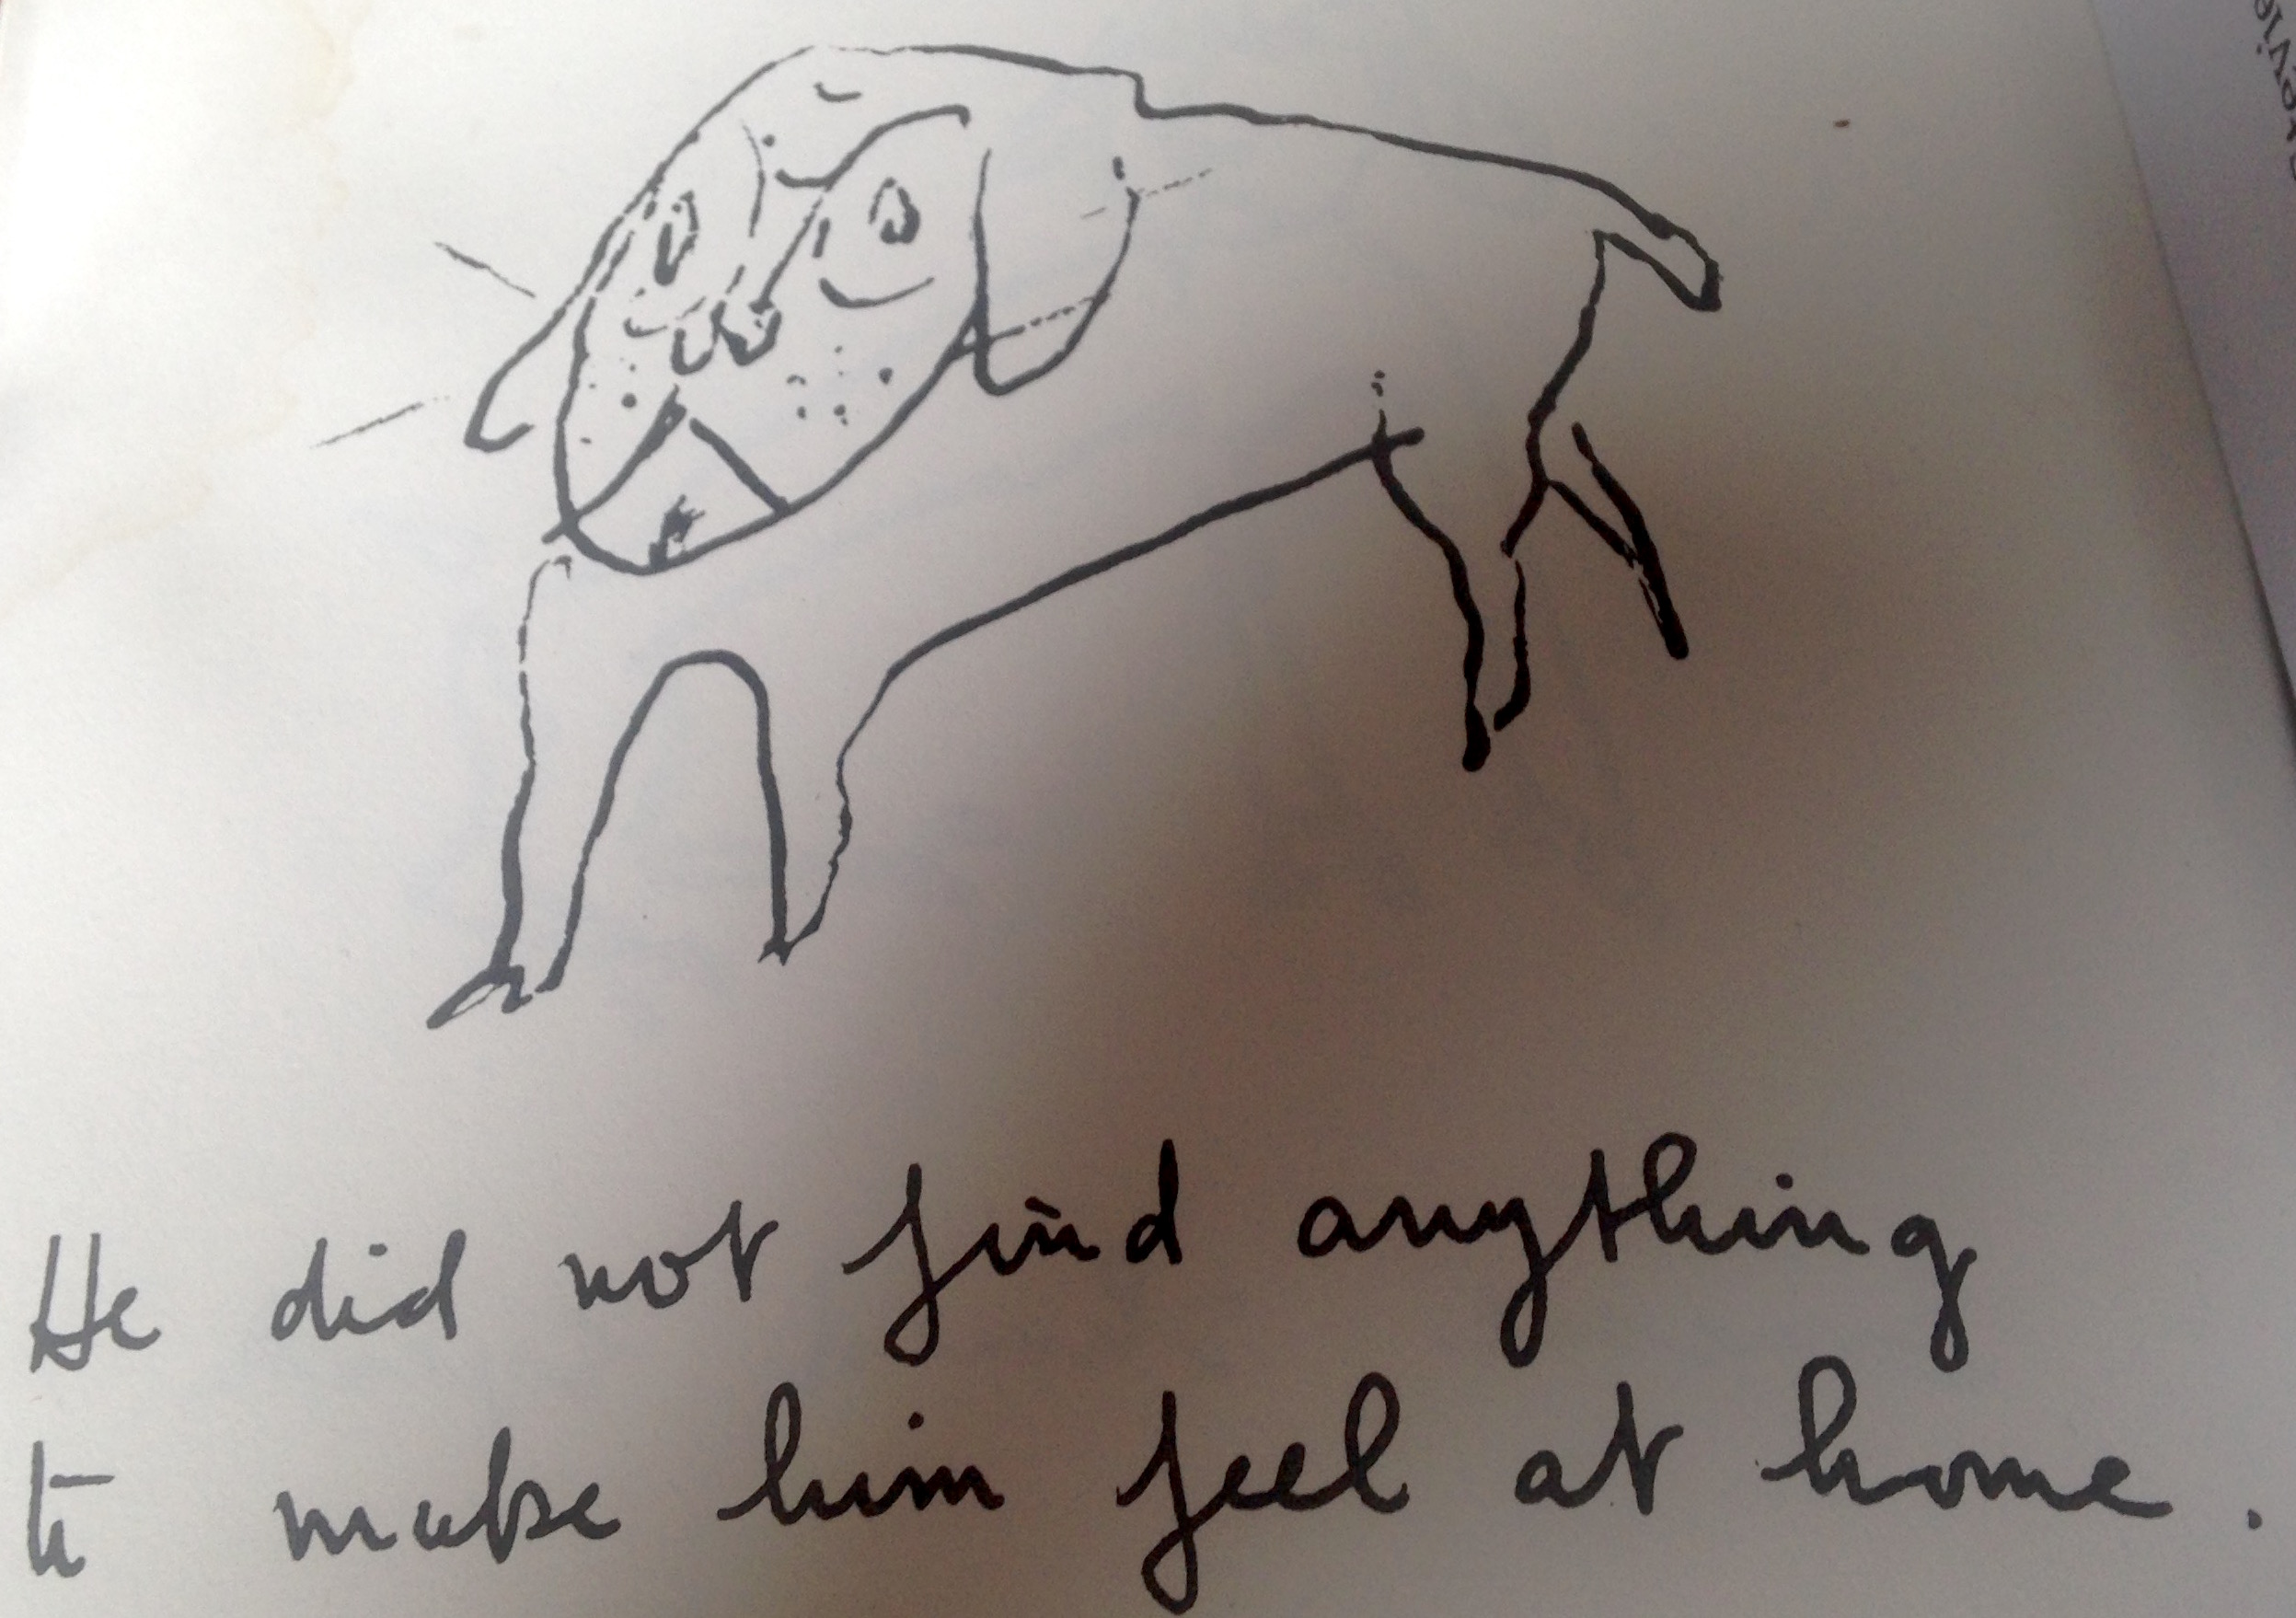 He did not find anything
to make him feel at home.